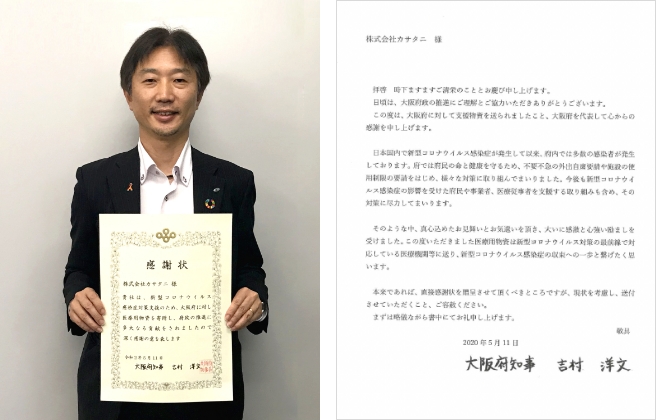 感謝状
株式会社カサタニ 様
貴社は、新型コロナウイルス
感染症対策支援のため、大阪府に対し
医療用物資を寄附し、府政の推進に
多大なる貢献をされましたので
深く感謝の意を表します
令和2年5月11日
大阪府知事 吉村 洋文
株式会社カサタニ 様
拝啓 時下ますますご清栄のこととお慶び申し上げます。
日頃は、大阪府政の推進にご理解とご協力いただきありがとうございます。
この度は、大阪府に対して支援物資を送られましたこと、大阪府を代表して心からの
感謝を申し上げます。
日本国内で新型コロナウイルス感染症が発生して以来、府内では多数の感染者が発生
しております。府では府民の命と健康を守るため、不要不急の外出自粛要請や施設の使
用制限の要請をはじめ、様々な対策に取り組んでまいりました。今後も新型コロナウイ
ルス感染症の影響を受けた府民や事業者、医療従事者を支援する取り組みも含め、その
対策に尽力してまいります。
そのような中、真心込めたお見舞いとお気遣いを頂き、大いに感激と心強い励ましを
受けました。この度いただきました医療用物資は新型コロナウイルス対策の最前線で対
応している医療機関等に送り、新型コロナウイルス感染症の収束への一歩と繋げたく思
います。
本来であれば、直接感謝状を贈呈させて頂くべきところですが、現状を考慮し、送付
させていただくこと、ご容赦ください。
まずは略儀ながら書中にてお礼申し上げます。
敬具
2020年5月11日
大阪府知事 吉村 洋文